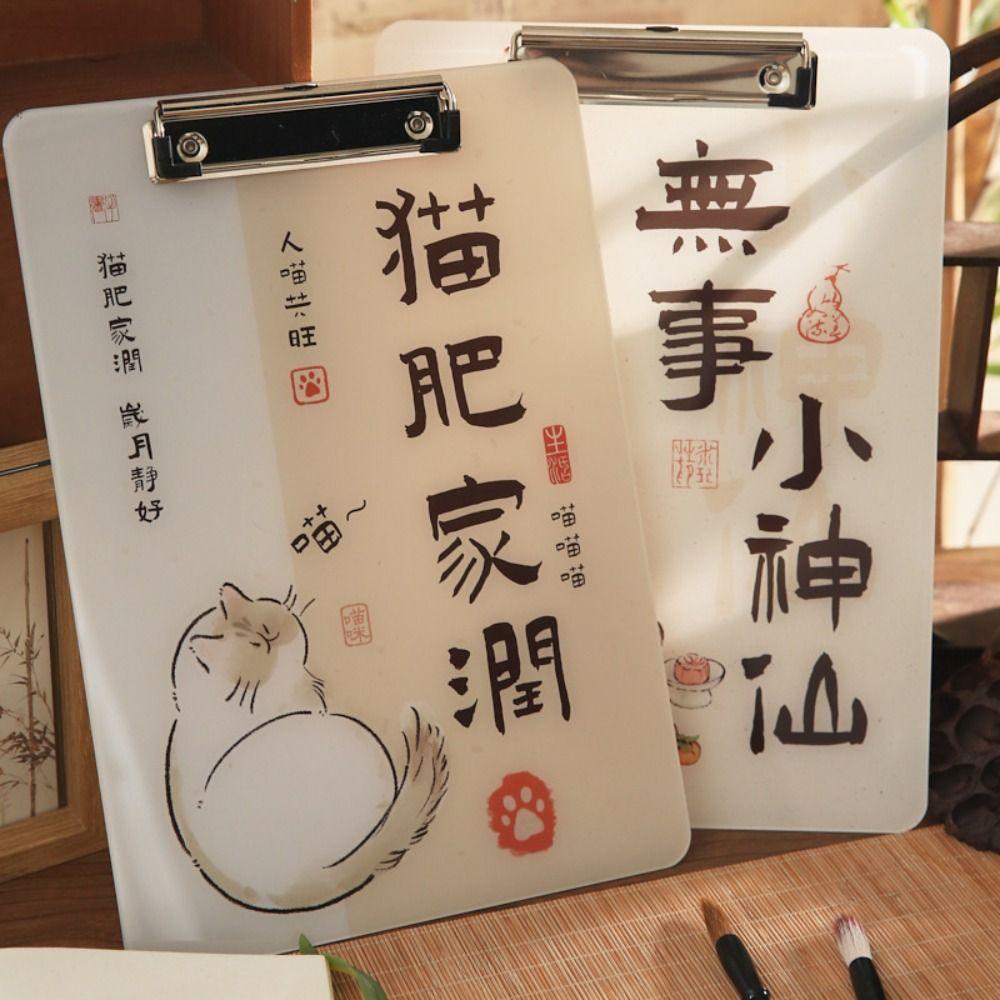 猫肥家潤
人喵共旺
猫肥家潤 歲月静好
喵~
喵咪
生活
喵喵喵
無事
小神仙